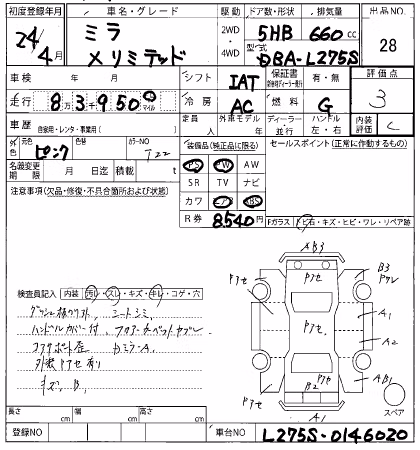 初度登録年月 車名・グレード 駆動 ドア数・形状 排気量 出品NO.
24年 4月 ミラ 2WD 5HB 660cc 28
メリミテッド 4WD 型式 DBA-L275S
車検 年 月 シフト IAT 保証書 有・無 評価点
走行 83千950 マイル 冷房 AC 燃料 G 3
車歴 自家用・レンタ・事業用( ) 定員 人 外車モデル 年 ディーラー・並行 ハンドル 左・右 内装評価 C
外色 元色 ピンク 色替 カラーNO T22 装備品(純正品に限る) セールスポイント(正常に作動するもの)
名義変更期限 月 日迄 積載 t PS PW AW
注意事項(欠品・修復・不具合箇所および状態) SR TV ナビ
カワ エアB ABS
R券 8540円 Fガラス 飛石・キズ・ヒビ・ワレ・リペア跡
検査員記入 内装 汚レ・スレ・キズ・キレ・コゲ・穴
シートシミ
ハンドルカバー付
コアサポート歪 Dミラー A
外装トアセ有り
キズ B
AB3
トアセ トアセ B3 トアレ
A1
トアセ A2
トアセ B2 トアセ AB1
トアセ A1 スペア
長さ cm 幅 cm 高さ cm
登録NO 車台NO L275S-0146020